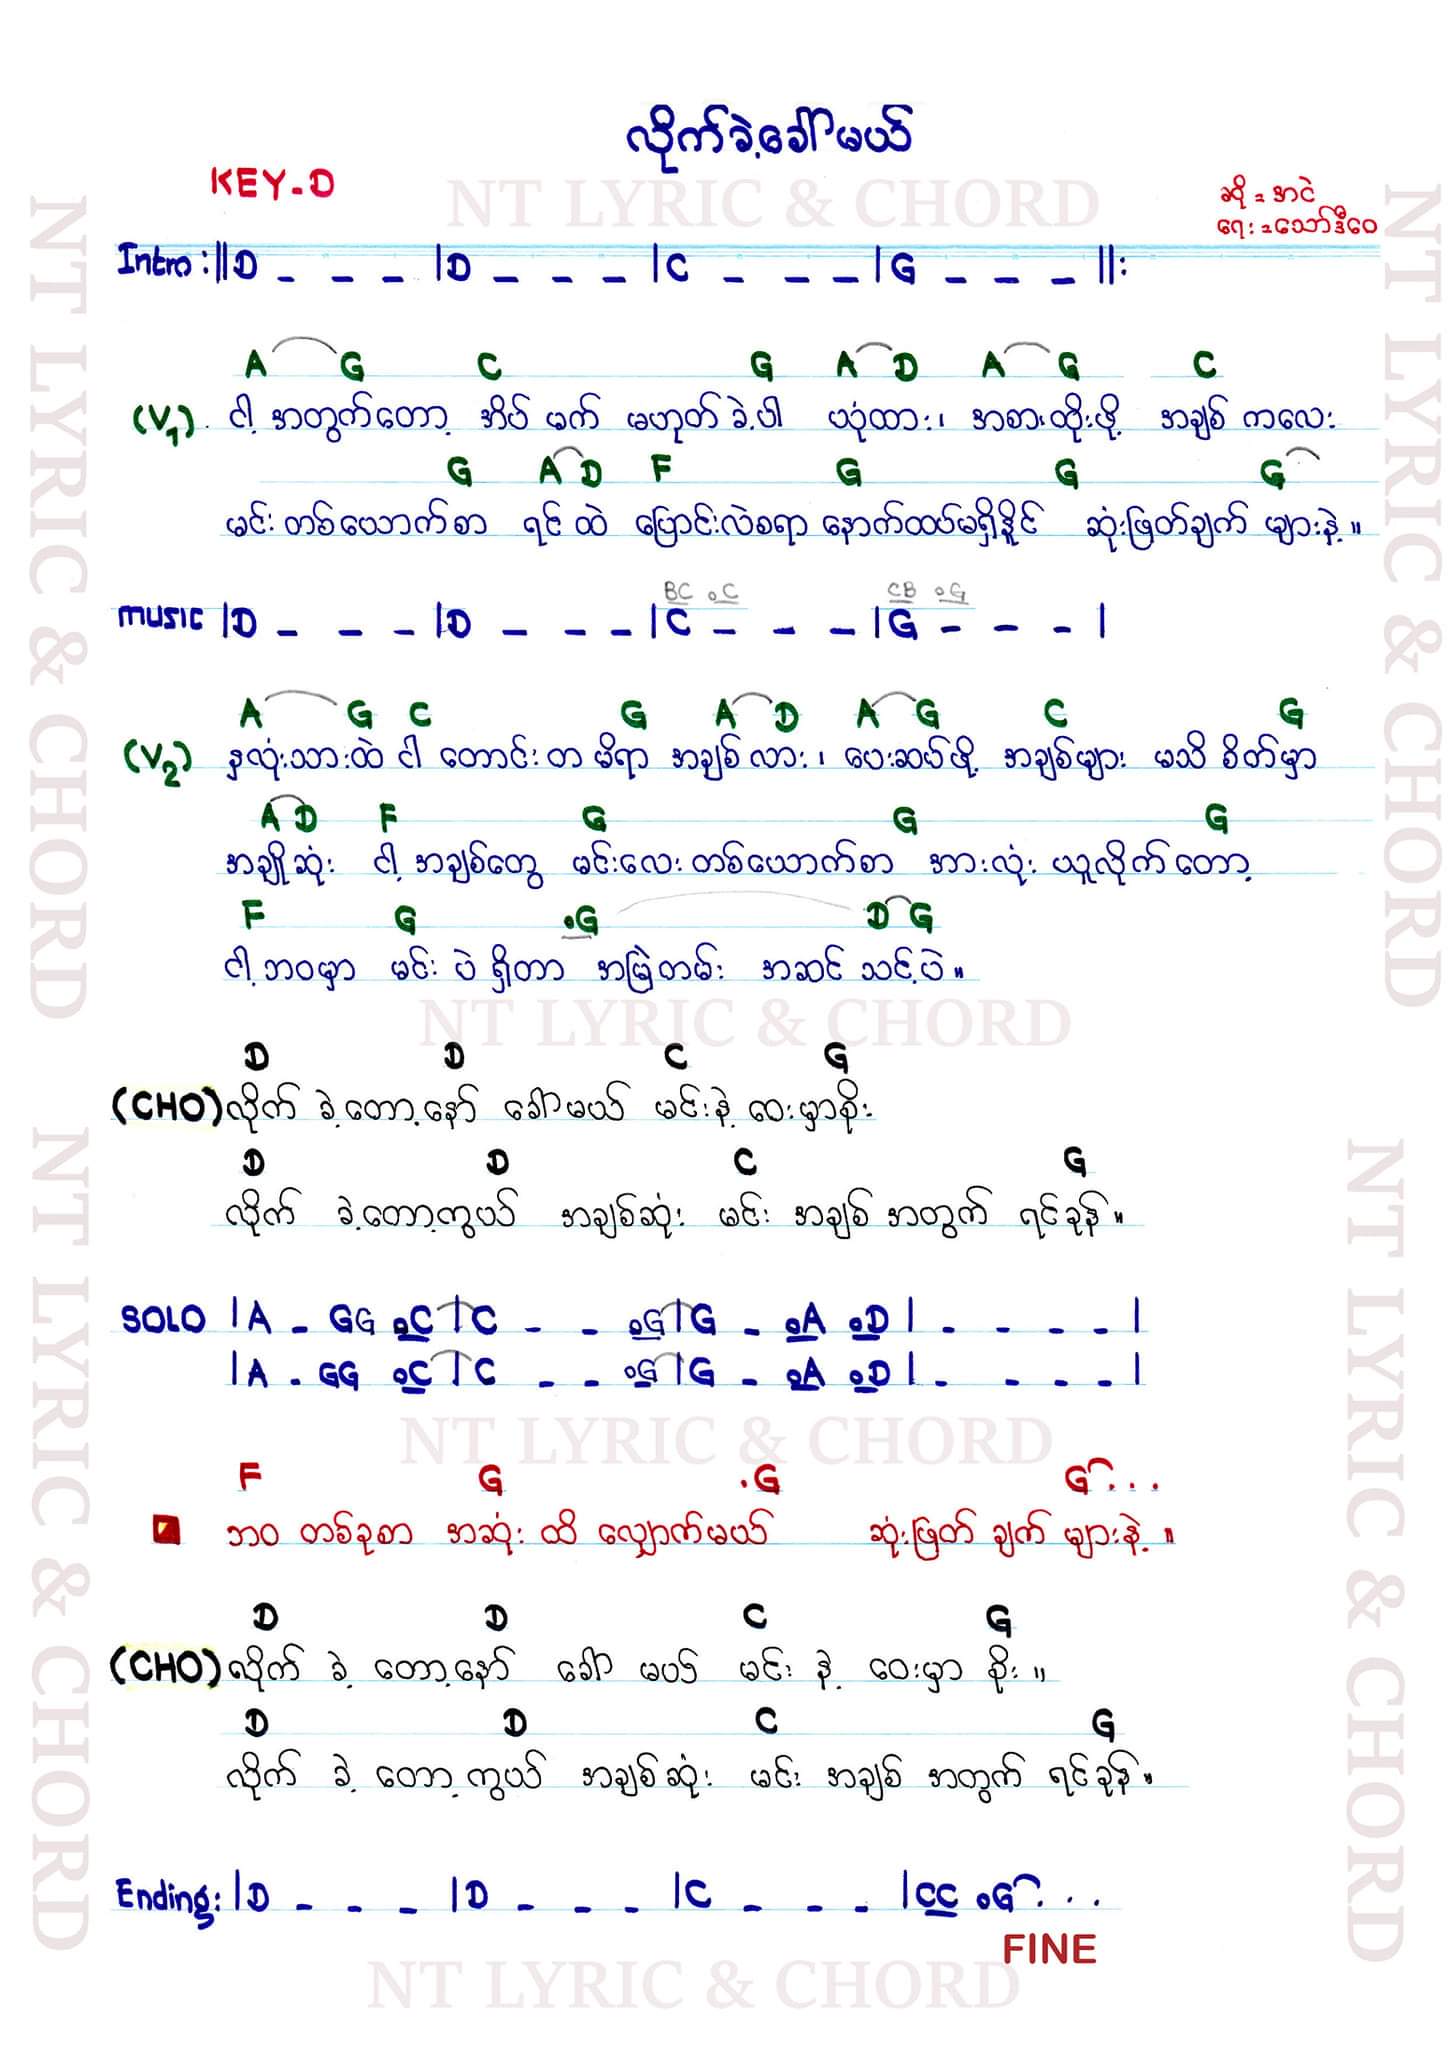 လိုက်ခဲ့ခေါ်မယ်
KEY-D
NT LYRIC & CHORD
ဆို = အငဲ
ရေး = သော်ဒီဝေ
Intro :||D _ _ _ |D _ _ _ |C _ _ _ |G _ _ _ ||:
A G C G A D A G C
(V1) ငါ့ အတွက်တော့ အိပ် မက် မဟုတ် ခဲ့ပါ ယုံထား၊ အစားထိုးဖို့ အချစ် ကလေး
G A D F G G G
မင်း တစ်ယောက်စာ ရင် ထဲ ပြောင်းလဲစရာ နောက်ထပ်မရှိနိူင် ဆုံးဖြတ်ချက် များနဲ့ ။
BC .C CB .G
MUSIC |D _ _ _ |D _ _ _ |C _ _ _ |G _ _ _ |
A G C G A D A G C G
(V2) နှလုံးသားထဲ ငါ တောင်းတ မိရာ အချစ် လား ၊ ပေးဆပ်ဖို့ အချစ်များ မသိ စိတ်မှာ
A D F G G G
အချိုဆုံး ငါ့ အချစ်တွေ မင်းလေး တစ်ယောက်စာ အားလုံး ယူလိုက် တော့
F G .G D G
ငါ့ဘဝမှာ မင်း ပဲ ရှိတာ အမြဲတမ်း အဆင် သင့်ပဲ ။
NT LYRIC & CHORD
D D C G
(CHO) လိုက် ခဲ့တော့နော် ခေါ်မယ် မင်းနဲ့ ဝေးမှာစိုး
D D C G
လိုက် ခဲ့တော့ကွယ် အချစ်ဆုံး မင်း အချစ် အတွက် ရင်ခုန် ။
SOLO |A _ GG .C |C _ _ .G |G _ .A .D | _ _ _ _ |
|A _ GG .C |C _ _ .G |G _ .A .D | _ _ _ _ |
NT LYRIC & CHORD
F G .G G...
ဘဝ တစ်ခုစာ အဆုံး ထိ လျှောက်မယ် ဆုံးဖြတ် ချက် များနဲ့ ။
D D C G
(CHO) လိုက် ခဲ့ တော့နော် ခေါ် မယ် မင်း နဲ့ ဝေးမှာ စိုး ။
D D C G
လိုက် ခဲ့ တော့ ကွယ် အချစ်ဆုံး မင်း အချစ် အတွက် ရင်ခုန် ။
Ending: |D _ _ _ |D _ _ _ |C _ _ _ |CC .G...
FINE
NT LYRIC & CHORD
NT LYRIC & CHORD
NT LYRIC & CHORD
NT LYRIC & CHORD
NT LYRIC & CHORD